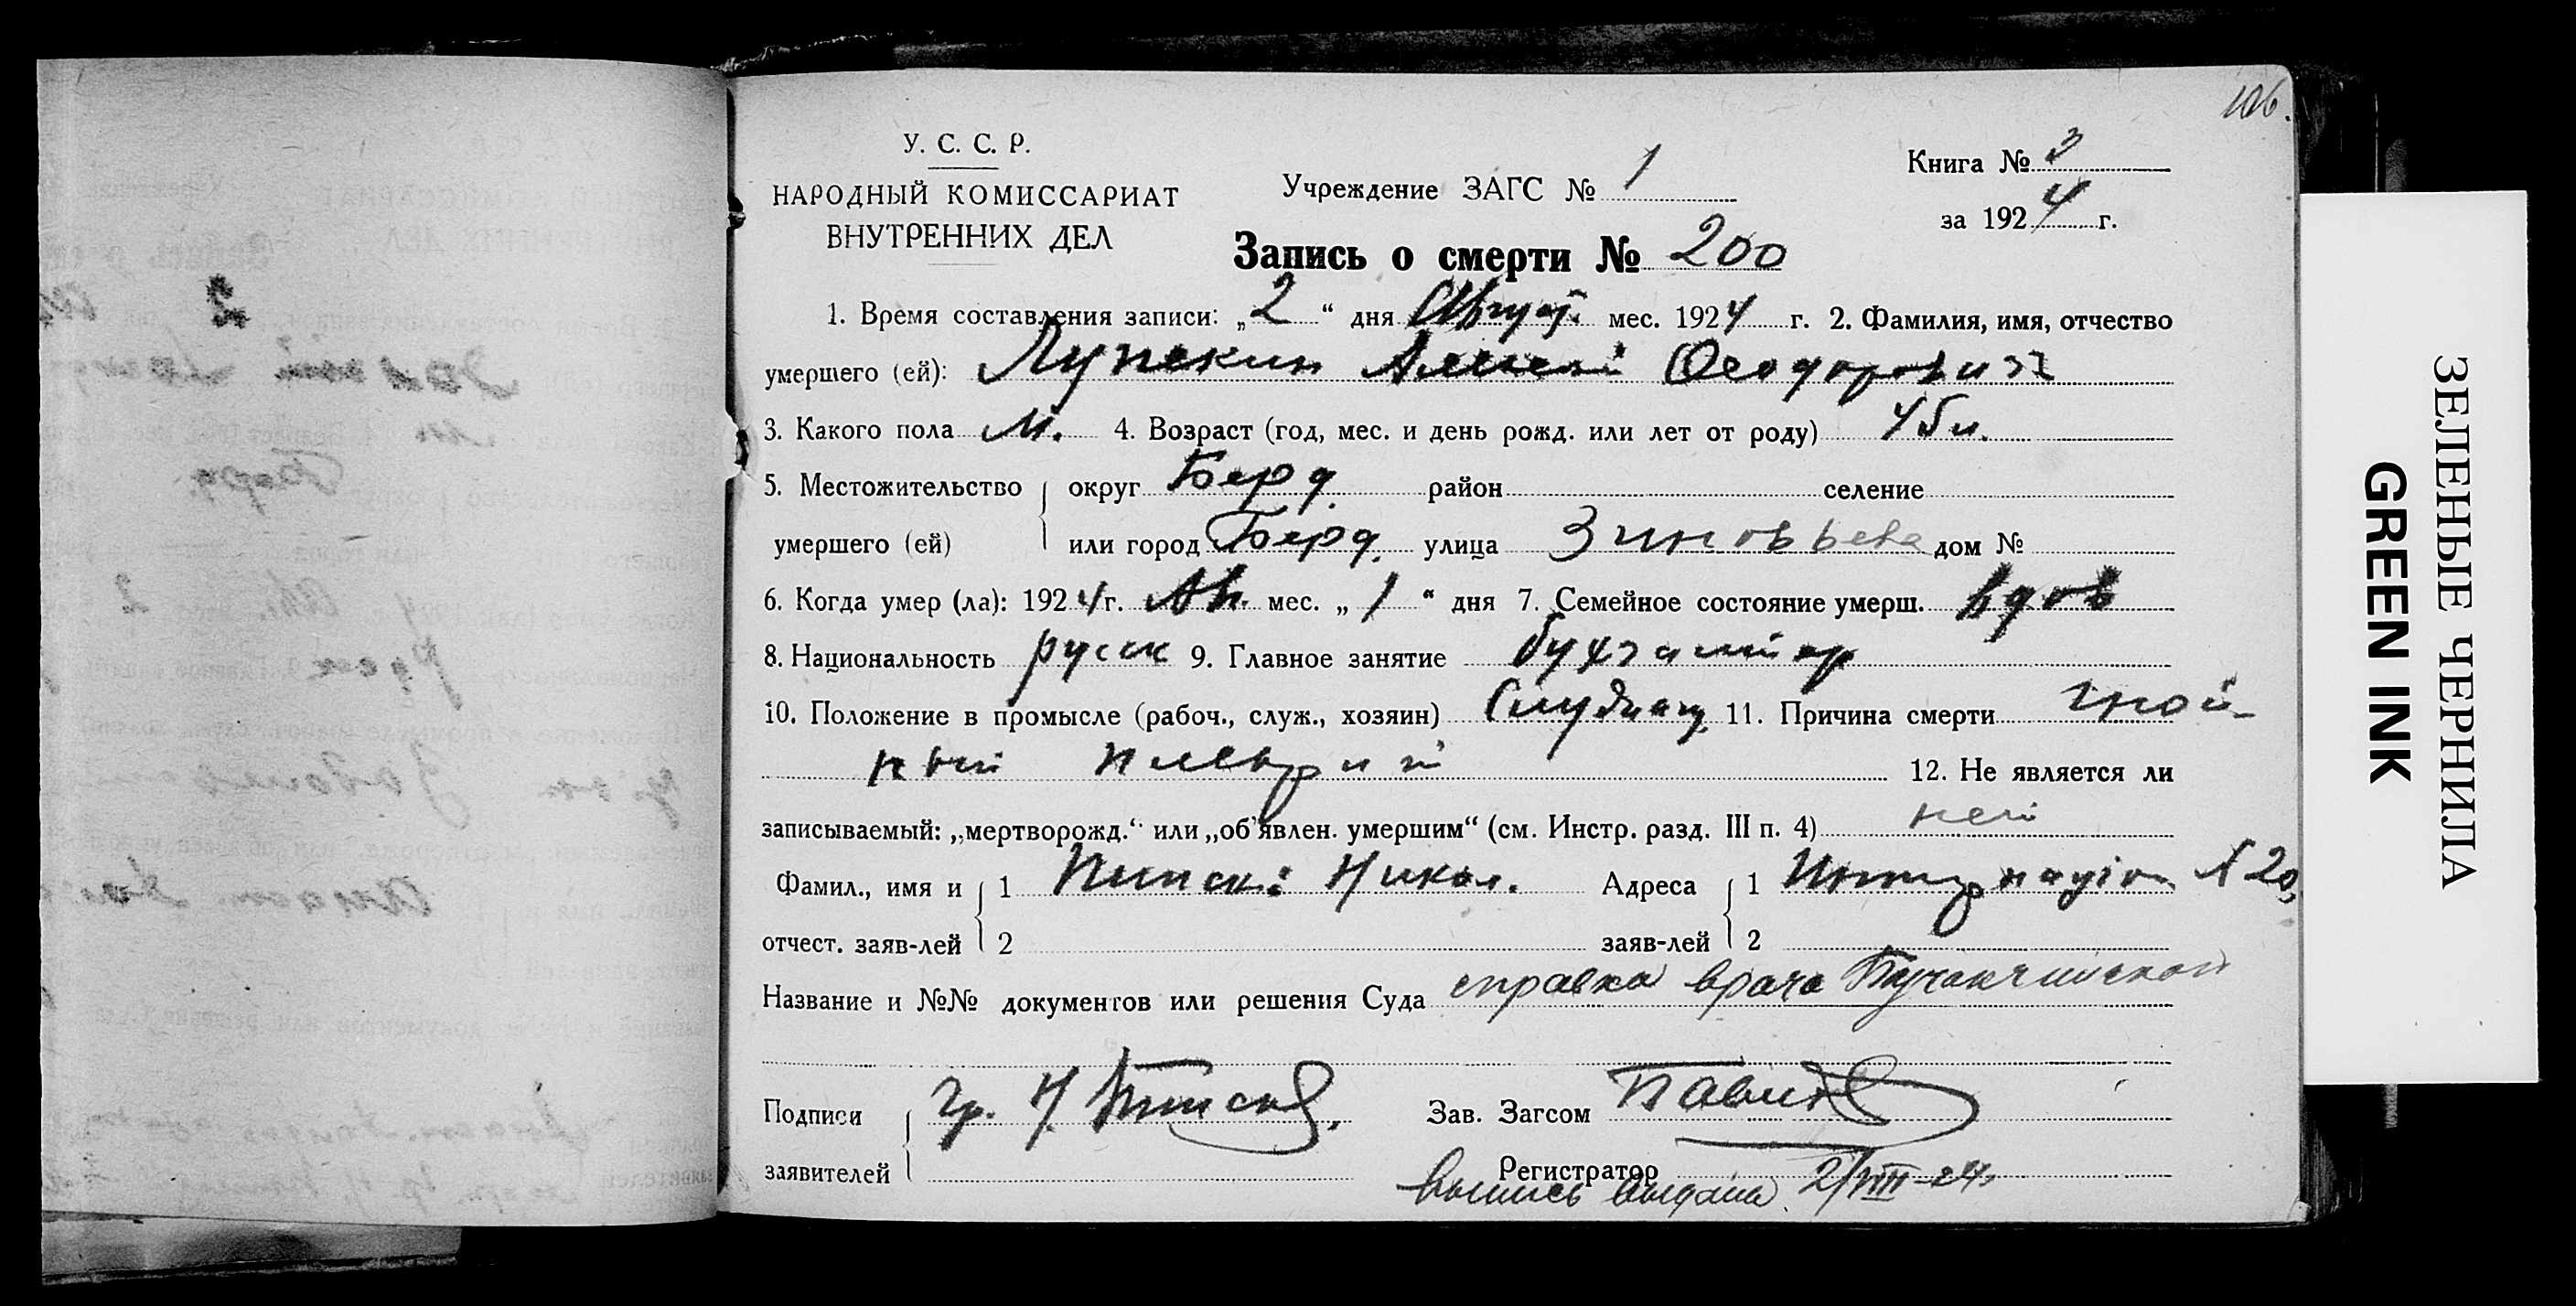 106.
У. С. С. Р.
НАРОДНЫЙ КОМИССАРИАТ
ВНУТРЕННИХ ДЕЛ
Учреждение ЗАГС № 1
Книга № 3
за 1924 г.
Запись о смерти № 200
1. Время составления записи: „2“ дня Август. мес. 1924 г. 2. Фамилия, имя, отчество
умершего (ей): Алексей Феодорович
3. Какого пола М. 4. Возраст (год, мес. и день рожд. или лет от роду) 45 л.
5. Местожительство округ Берд. район селение
умершего (ей) или город Берд. улица Зиновьева дом №
6. Когда умер (ла): 1924 г. Ав. мес. „1“ дня 7. Семейное состояние умерш. вдов
8. Национальность русск 9. Главное занятие бухгалтер
10. Положение в промысле (рабоч., служ., хозяин) Служащ. 11. Причина смерти гной-
ный плеврит 12. Не является ли
записываемый: „мертворожд.“ или „об'явлен. умершим“ (см. Инстр. разд. III п. 4) нет
Фамил., имя и 1 Никол. Адреса 1 N 20,
отчест. заяв-лей 2 заяв-лей 2
Название и №№ документов или решения Суда справка врача
Подписи гр. Н. Зав. Загсом
заявителей Регистратор
выпись выдана. 2/VIII-24.
ЗЕЛЕНЫЕ ЧЕРНИЛА
GREEN INK